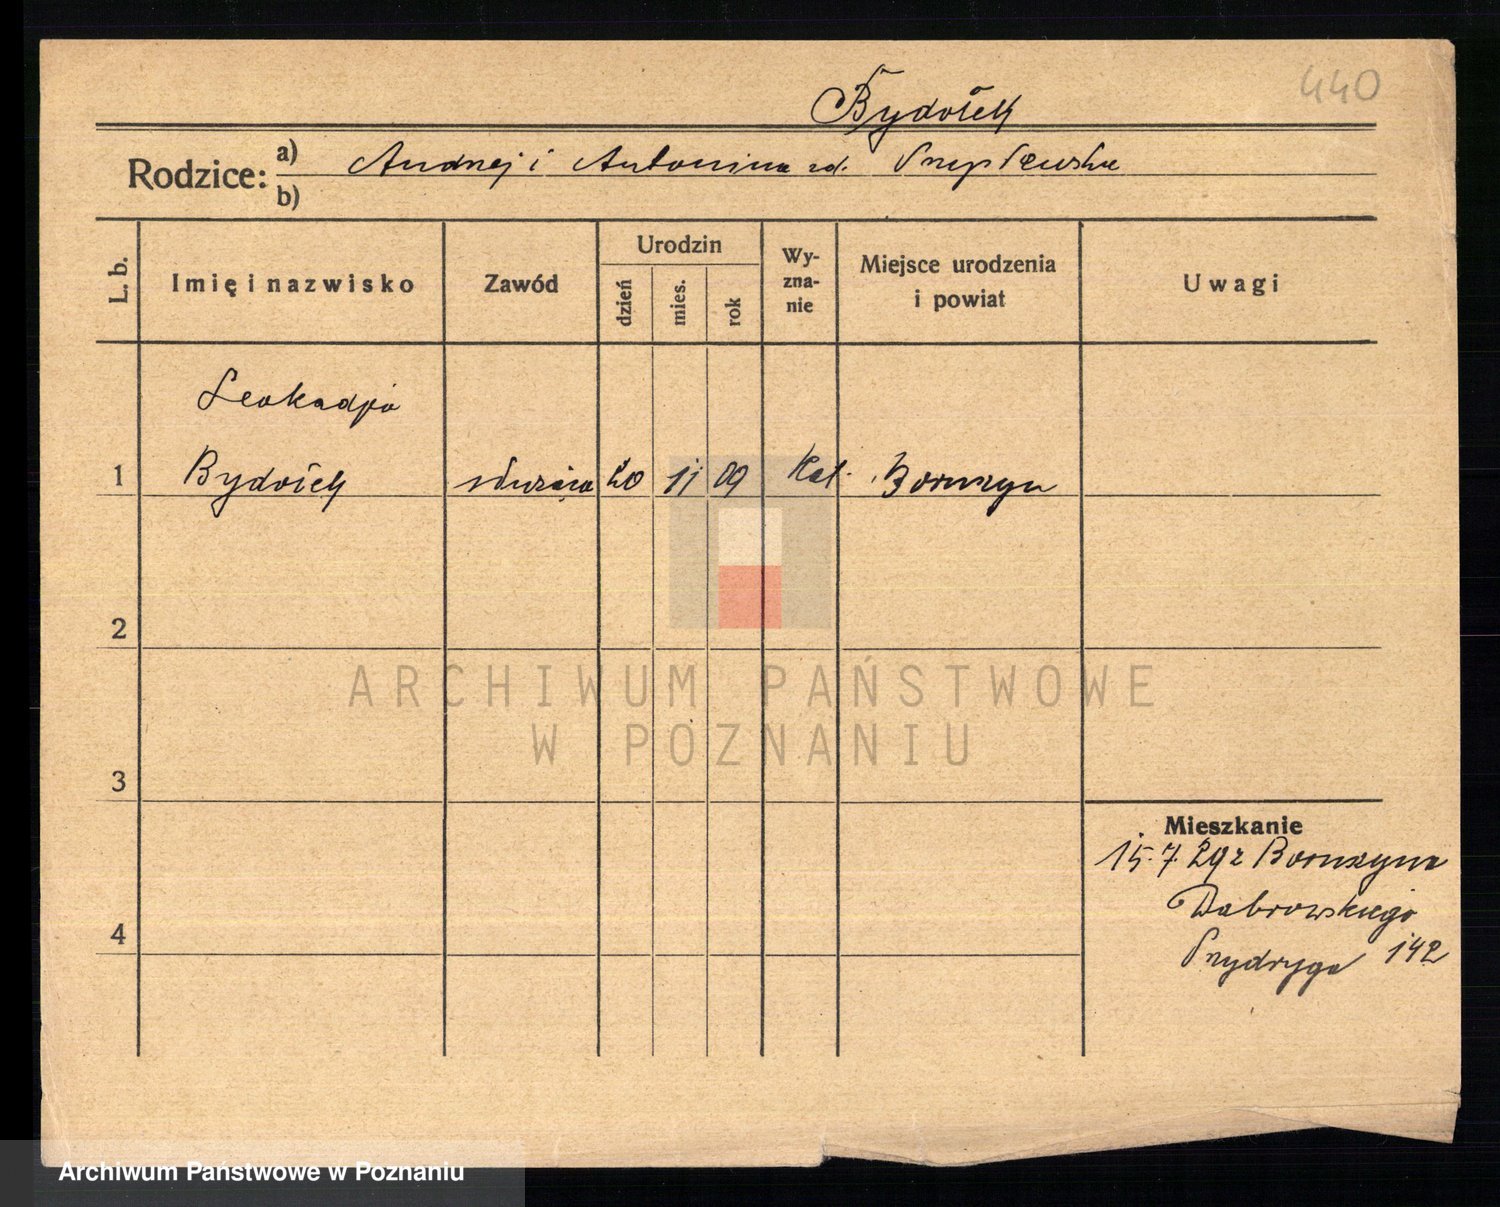 440
Bydołek
Rodzice: a) Andrzej i Antonina zd.
b)
L. b. Imię i nazwisko Zawód Urodzin dzień mies. rok Wy-zna-nie Miejsce urodzenia i powiat Uwagi
Leokadja
1 Bydołek służąca 20 11 09 Kat. Boruszyn
2
ARCHIWUM PAŃSTWOWE
W POZNANIU
3
Mieszkanie
15.7.29 z Boruszyna
Dąbrowskiego
4 142
Archiwum Państwowe w Poznaniu